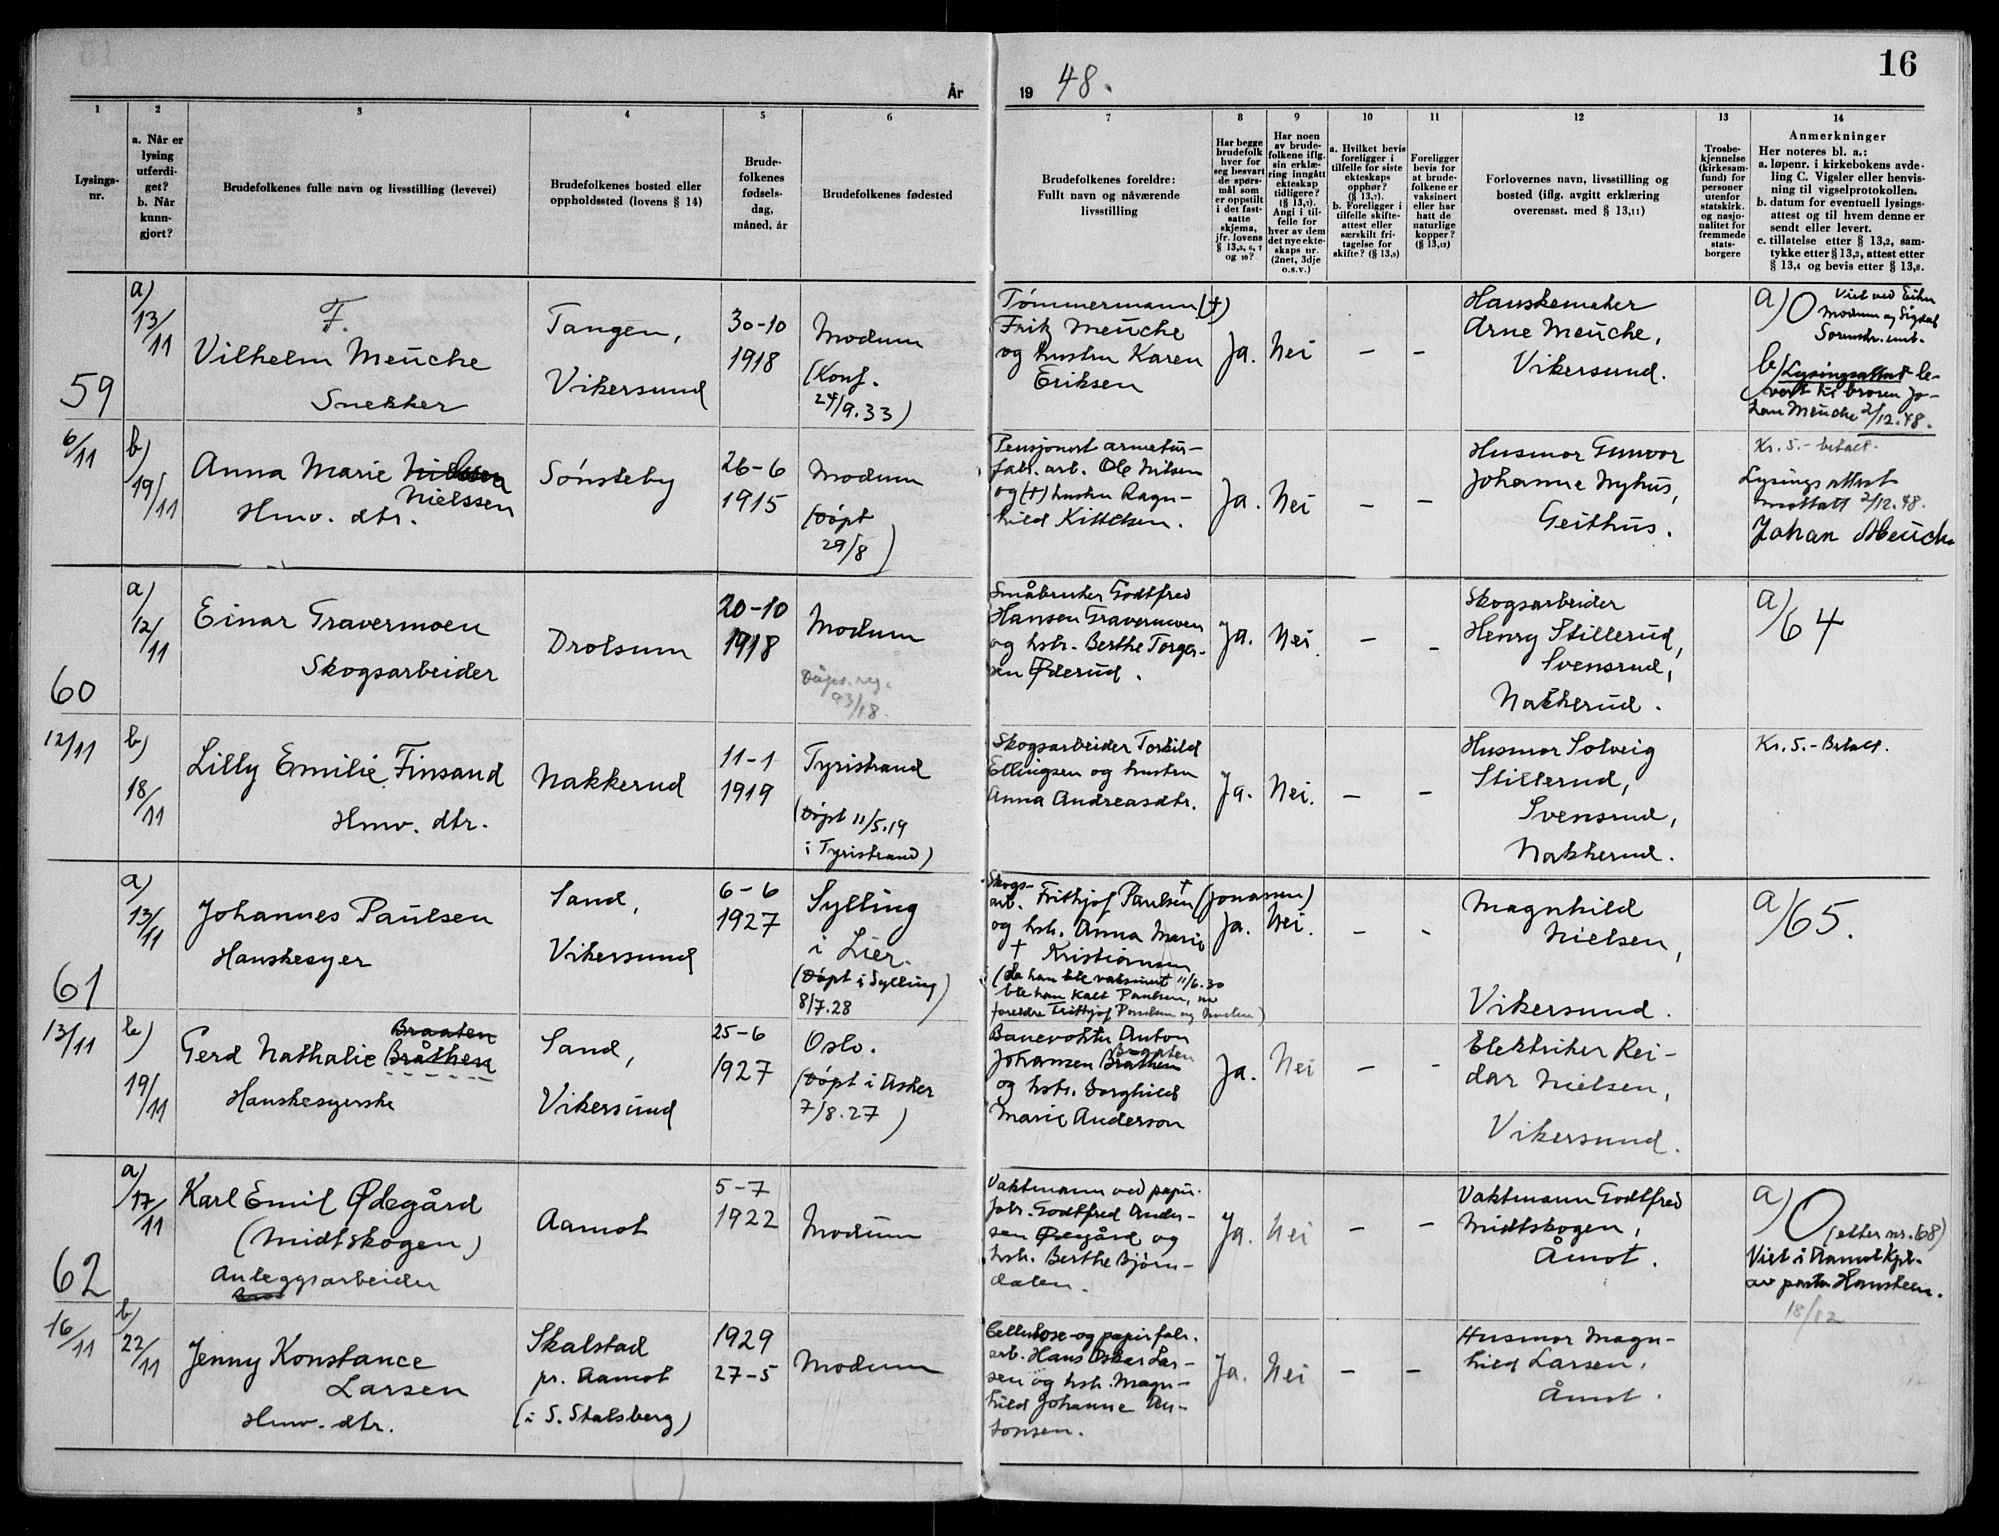 16
År 19 48.
1
Lysings-
nr.
2
a. Når er
lysing
utferdi-
get?
b. Når
kunn-
gjort?
3
Brudefolkenes fulle navn og livsstilling (levevei)
4
Brudefolkenes bosted eller
oppholdssted (lovens § 14)
5
Brude-
folkenes
fødsels-
dag,
måned, år
6
Brudefolkenes fødested
7
Brudefolkenes foreldre:
Fullt navn og nåværende
livsstilling
8
Har begge
brudefolk
hver for
seg besvart
de spørs-
mål som
er oppstilt
i det fast-
satte
skjema,
jfr. lovens
§ 13,5, 6, 7
og 10?
9
Har noen
av brude-
folkene iflg.
sin erklæ-
ring inngått
ekteskap
tidligere?
(§ 13,7).
Angi i til-
felle for
hver av dem
det nye ekte-
skaps nr.
(2net, 3dje
o.s.v.)
10
a. Hvilket bevis
foreligger i
tilfelle for siste
ekteskaps
opphør?
(§ 13,7).
b. Foreligger i
tilfelle skifte-
attest eller
særskilt fri-
tagelse for
skifte? (§ 13,9)
11
Foreligger
bevis for
at brude-
folkene er
vaksinert
eller har
hatt de
naturlige
kopper?
(§ 13,12)
12
Forlovernes navn, livsstilling og
bosted (iflg. avgitt erklæring
overensst. med § 13,11)
13
Trosbe-
kjennelse
(kirkesam-
fund) for
personer
utenfor
statskirk.
og nasjo-
nalitet for
fremmede
stats-
borgere
14
Anmerkninger
Her noteres bl. a.:
a. løpenr. i kirkebokens avde-
ling C. Vigsler eller henvis-
ning til vigselprotokollen.
b. datum for eventuell lysings-
attest og til hvem denne er
sendt eller levert.
c. tillatelse etter § 13,2, sam-
tykke etter § 13,3, attest etter
§ 13,4 og bevis etter § 13,8.
59
6/11
a) 13/11
F.
Vilhelm Meuche
Snekker
Tangen,
Vikersund
30-10
1918
Modum
(Konf.
24/9.33)
Tømmermann (+)
Fritz Meuche
og hustru Karen
Eriksen
Ja.
Nei
–
–
Hanskemaker
Arne Meuche,
Vikersund.
a) O
Modum og Sigdal
b) Lysingsattest le-
vert til broren Jo-
han Meuche 2/12.48.
b) 19/11
Anna Marie
Nielssen
Hmv. dtr.
Sønsteby
26-6
1915
Modum
(Døpt
29/8)
Pensjonert armatur-
fabr. arb. Ole Nilsen
og (+) hustru Ragn-
hild Kittelsen.
Ja.
Nei
–
–
Husmor Gunvor
Johanne Nyhus,
Geithus.
Kr. 5.- betalt.
Lysingsattest
mottatt 2/12.48.
Johan Meuche
60
12/11
a) 12/11
Einar Gravermoen
Skogsarbeider
Drolsum
20-10
1918
Modum
Døps. reg.
93/18.
Småbruker Godtfred
Hansen Gravermoen
og hstr. Berthe Torger-
sen Øderud.
Ja.
Nei
–
–
Skogsarbeider
Henry Stillerud,
Svensrud,
Nakkerud.
a) 64
b) 18/11
Lilly Emilie Finsand
Hmv. dtr.
Nakkerud
11-1
1919
Tyristrand
(Døpt 11/5.19
i Tyristrand)
Skogsarbeider Torkild
Ellingsen og hustru
Anna Andreasdtr.
Ja.
Nei.
–
–
Husmor Solveig
Stillerud,
Svensrud,
Nakkerud.
Kr. 5.- Betalt.
61
13/11
a) 13/11
Johannes Paulsen
Hanskesyer
Sand,
Vikersund
6-6
1927
Sylling
i Lier.
(Døpt i Sylling)
8/7.28
Skogs-
arb. Frithjof Paulsen + (Jonassen)
og hstr. Anna Marie
+ Kristiansen
(Da han ble vaksinert 11/6.30
ble han kalt Paulsen,
foreldre Frithjof Paulsen og hustru)
Ja.
Nei.
–
-
Magnhild
Nielsen,
Vikersund.
a) 65.
b) 19/11
Gerd Nathalie Bråthen
Braaten
Hanskesyerske
Sand,
Vikersund
25-6
1927
Oslo.
(Døpt i Asker
7/8.27)
Banevokter Anton
Johansen Bråthen
Braaten
og hstr. Borghild
Marie Anderson
Ja.
Nei
–
-
Elektriker Rei-
dar Nielsen,
Vikersund.
62
16/11
a) 17/11
Karl Emil Ødegård
(Midtskogen)
Anleggsarbeider
Aamot
5-7
1922
Modum
Vaktmann ved papir-
fabr. Godtfred Ander-
sen Ødegård og
hstr. Berthe Bjørn-
dalen.
Ja.
Nei
–
–
Vaktmann Godtfred
Midtskogen,
Åmot.
a) O
(etter nr. 68)
Viet i Aamot Kpl.
av pastor Hansteen.
18/12
b) 22/11
Jenny Konstance
Larsen
Hmv. dtr.
Skalstad
pr. Aamot
(i S. Stalsberg)
1929
27-5
Modum
Cellulose- og papirfabr.
arb. Hans Oskar Lar-
sen og hstr. Magn-
hild Johanne An-
tonsen.
Ja.
Nei
–
–
Husmor Magn-
hild Larsen,
Åmot.